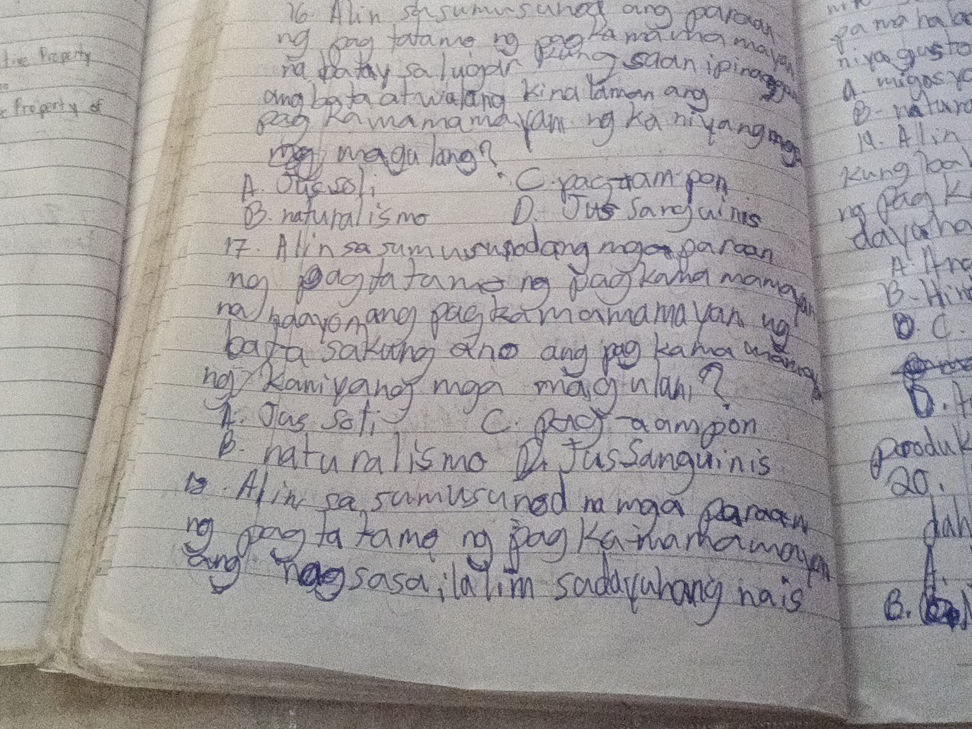 tive Property
e Property of
16. Alin sa sumusunod ang paraan
ng pag tatamo ng pagkamamamayan
na batay sa lugar kung saan ipinang
ang bata at walang kinalaman ang
pag kamamamayan ng kaniyang mga
magulang?
A. Jus soli
C. pag-aampon
B. naturalismo
D. Jus Sanguinis
17. Alin sa sumusunod ang mga paraan
ng pagtatamo ng pagkamamamayan
na naaayon ang pagkamamamayan ng
bata sa kung ano ang pag kamamamayan
ng kaniyang mga magulan?
A. Jus Soli
C. pag-aampon
B. naturalismo
D. Jus Sanguinis
18. Alin sa sumusunod na mga paraan
ng pag ta tamo ng pag Ka-mamamayan
ang nagsasailalim sadayuhang nais
pa ma hala
niya gusto
A. migos
B. natura
19. Alin
kung
ng pag k
dayuha
A.
B. Hin
C.
D.
produk
20.
dah
A.
B.